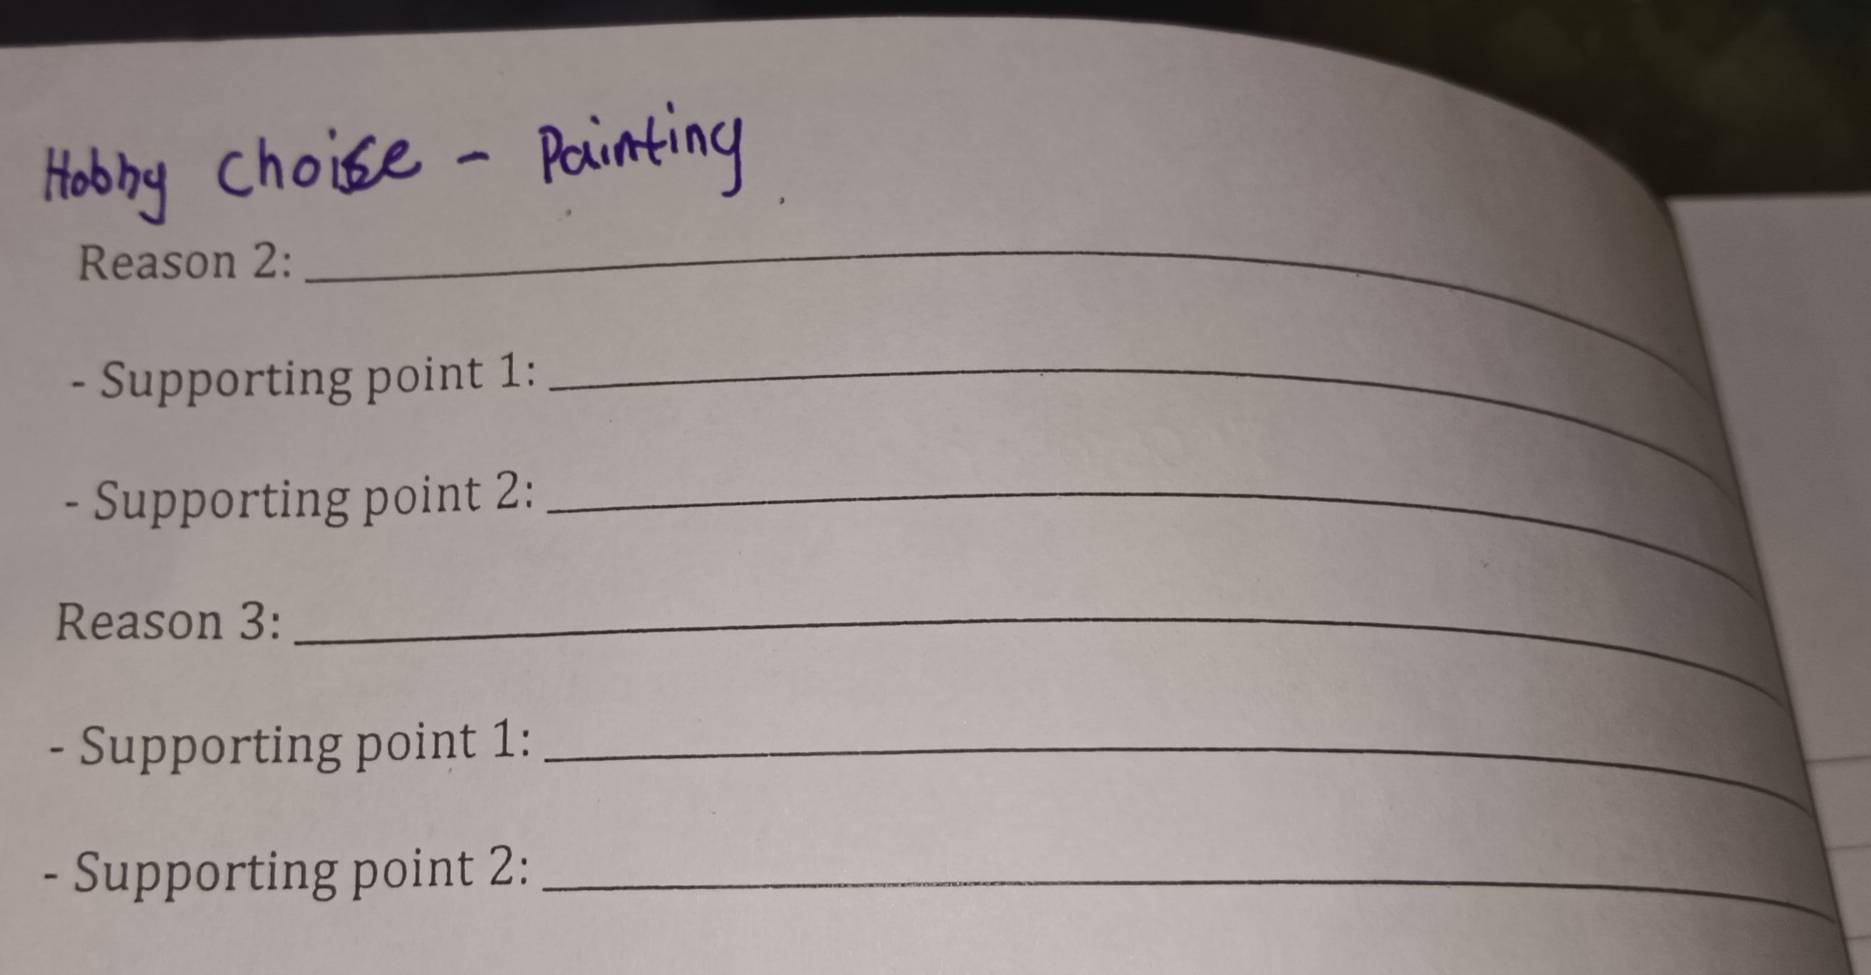 Hobby choice - Painting
Reason 2:
- Supporting point 1:
- Supporting point 2:
Reason 3:
- Supporting point 1:
- Supporting point 2: